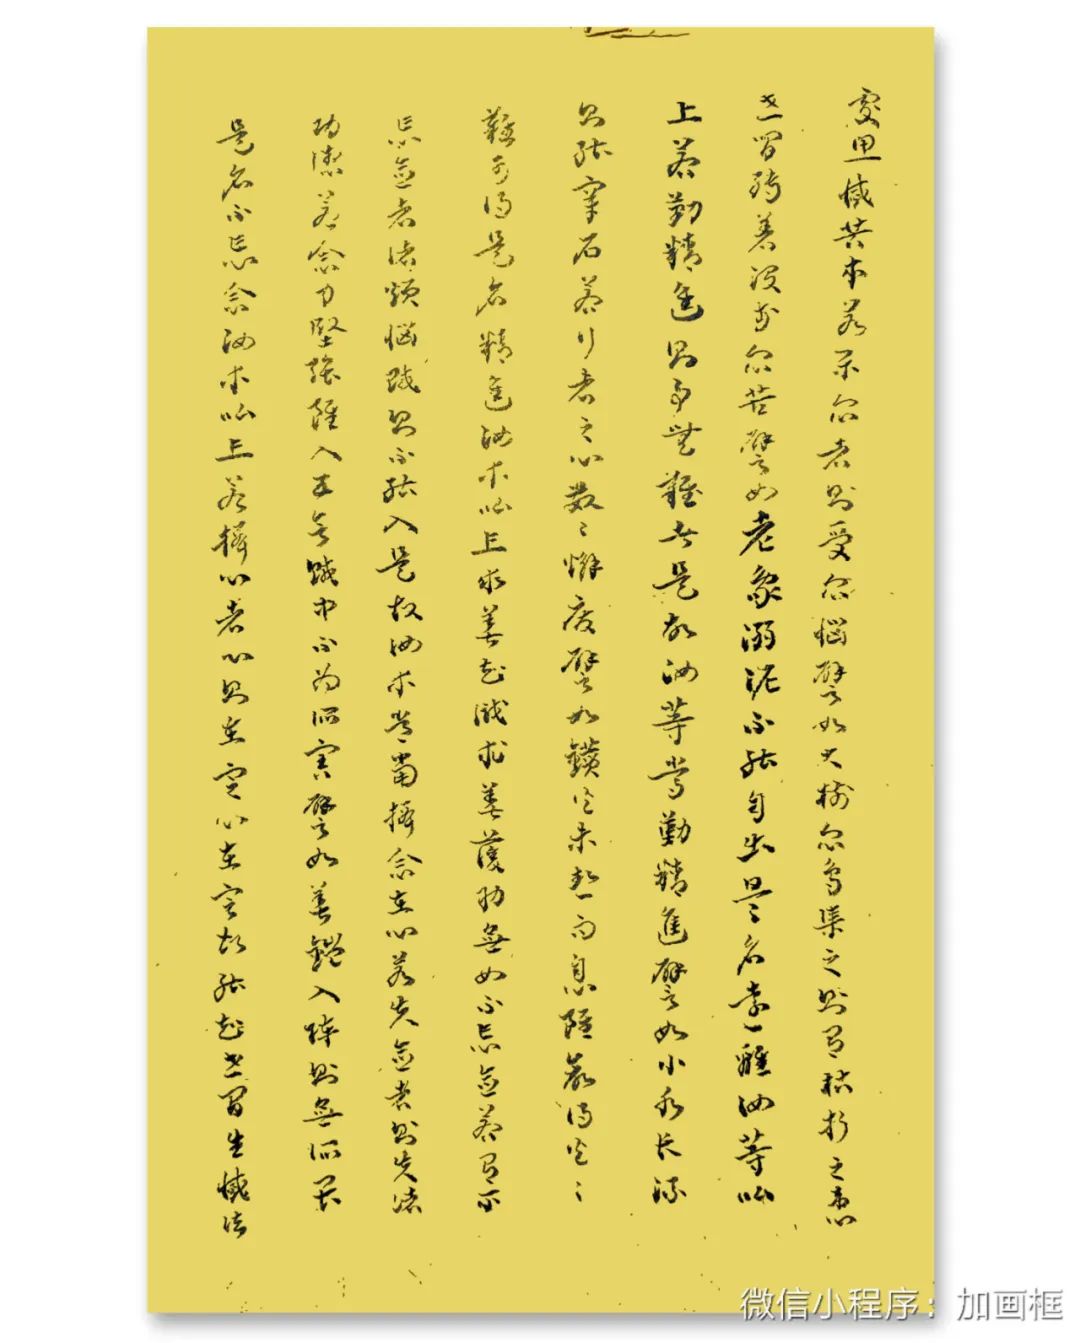 處思滅苦本若樂眾者則受眾惱譬如大樹眾鳥集之則有枯折之患
世間縛著沒於眾苦譬如老象溺泥不能自出是名遠離汝等比
丘若勤精進則事無難者是故汝等當勤精進譬如小水長流
則能穿石若行者之心數〻懈廢譬如鑽火未熱而息雖欲得火〻
難可得是名精進汝等比丘求善知識求善護助無如不忘念若有不
忘念者諸煩惱賊則不能入是故汝等常當攝念在心若失念者則失諸
功德若念力堅強雖入五欲賊中不為所害譬如著鎧入陣則無所畏
是名不忘念汝等比丘若攝心者心則在定心在定故能知世間生滅法
微信小程序：加画框